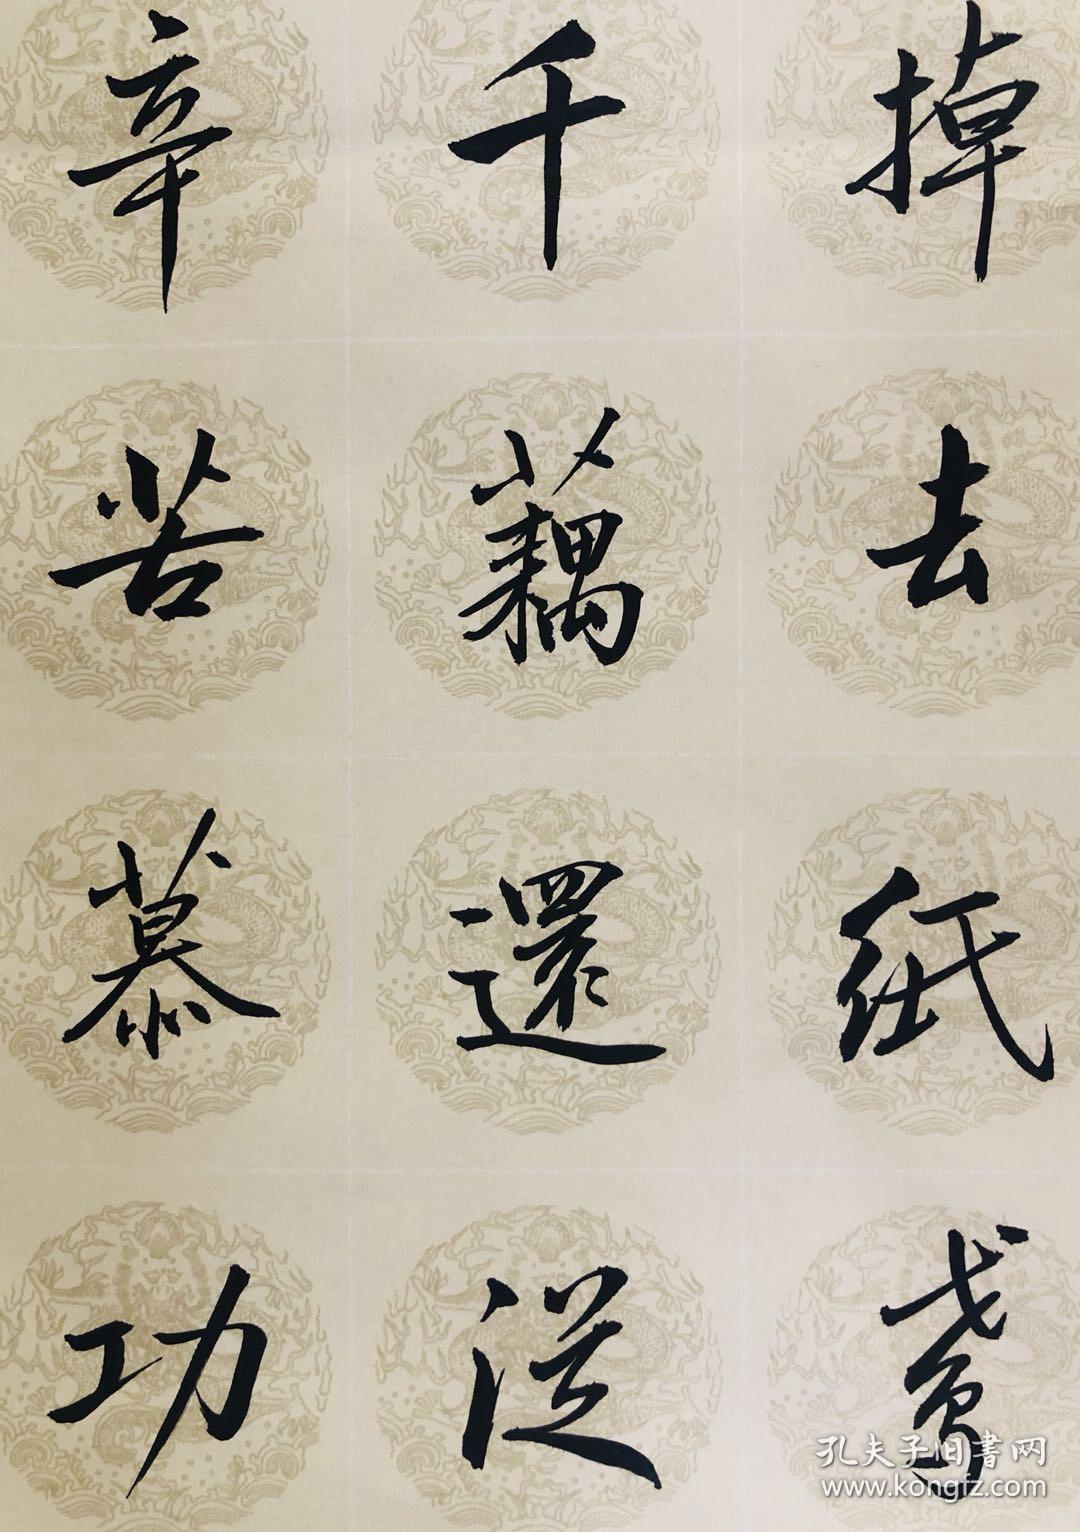 掉去纸鸢
千藕還從
辛苦慕功
孔夫子旧書网
www.kongfz.com